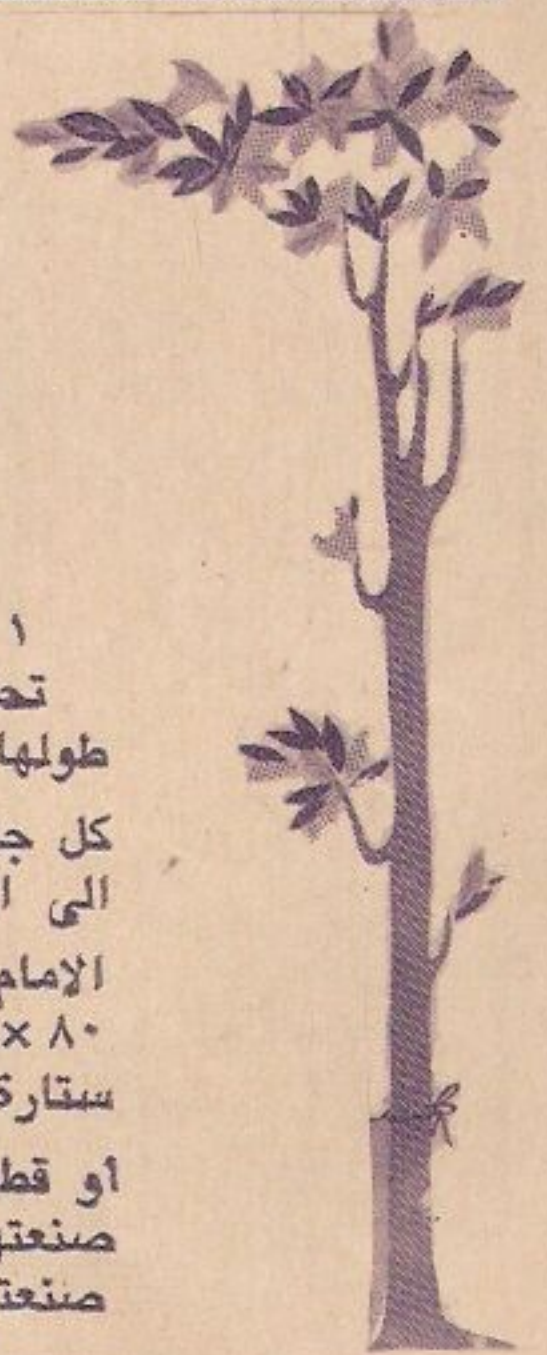 ١
تح
طولها
كل ج
الى ا
الامام
٨٠ ×
ستارة
أو قط
صنعته
صنعت